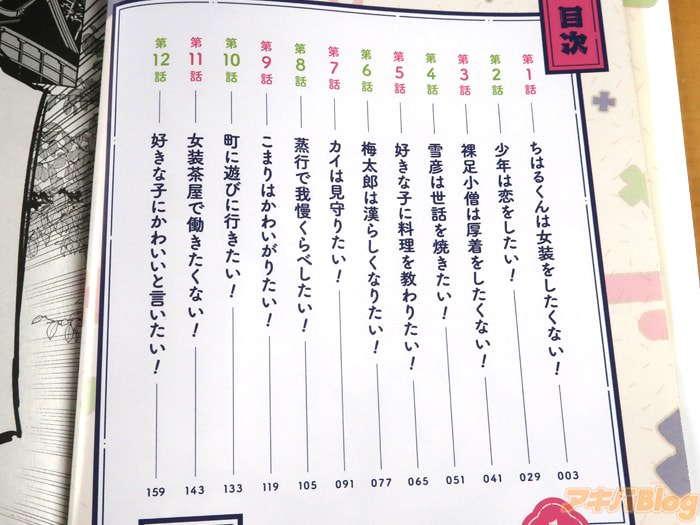 目次
第1話 ちはるくんは女装をしたくない! 003
第2話 少年は恋をしたい! 029
第3話 裸足小僧は厚着をしたくない! 041
第4話 雪彦は世話を焼きたい! 051
第5話 好きな子に料理を教わりたい! 065
第6話 梅太郎は漢らしくなりたい! 077
第7話 カイは見守りたい! 091
第8話 蒸行で我慢くらべしたい! 105
第9話 こまりはかわいがりたい! 119
第10話 町に遊びに行きたい! 133
第11話 女装茶屋で働きたくない! 143
第12話 好きな子にかわいいと言いたい! 159
アキバBlog